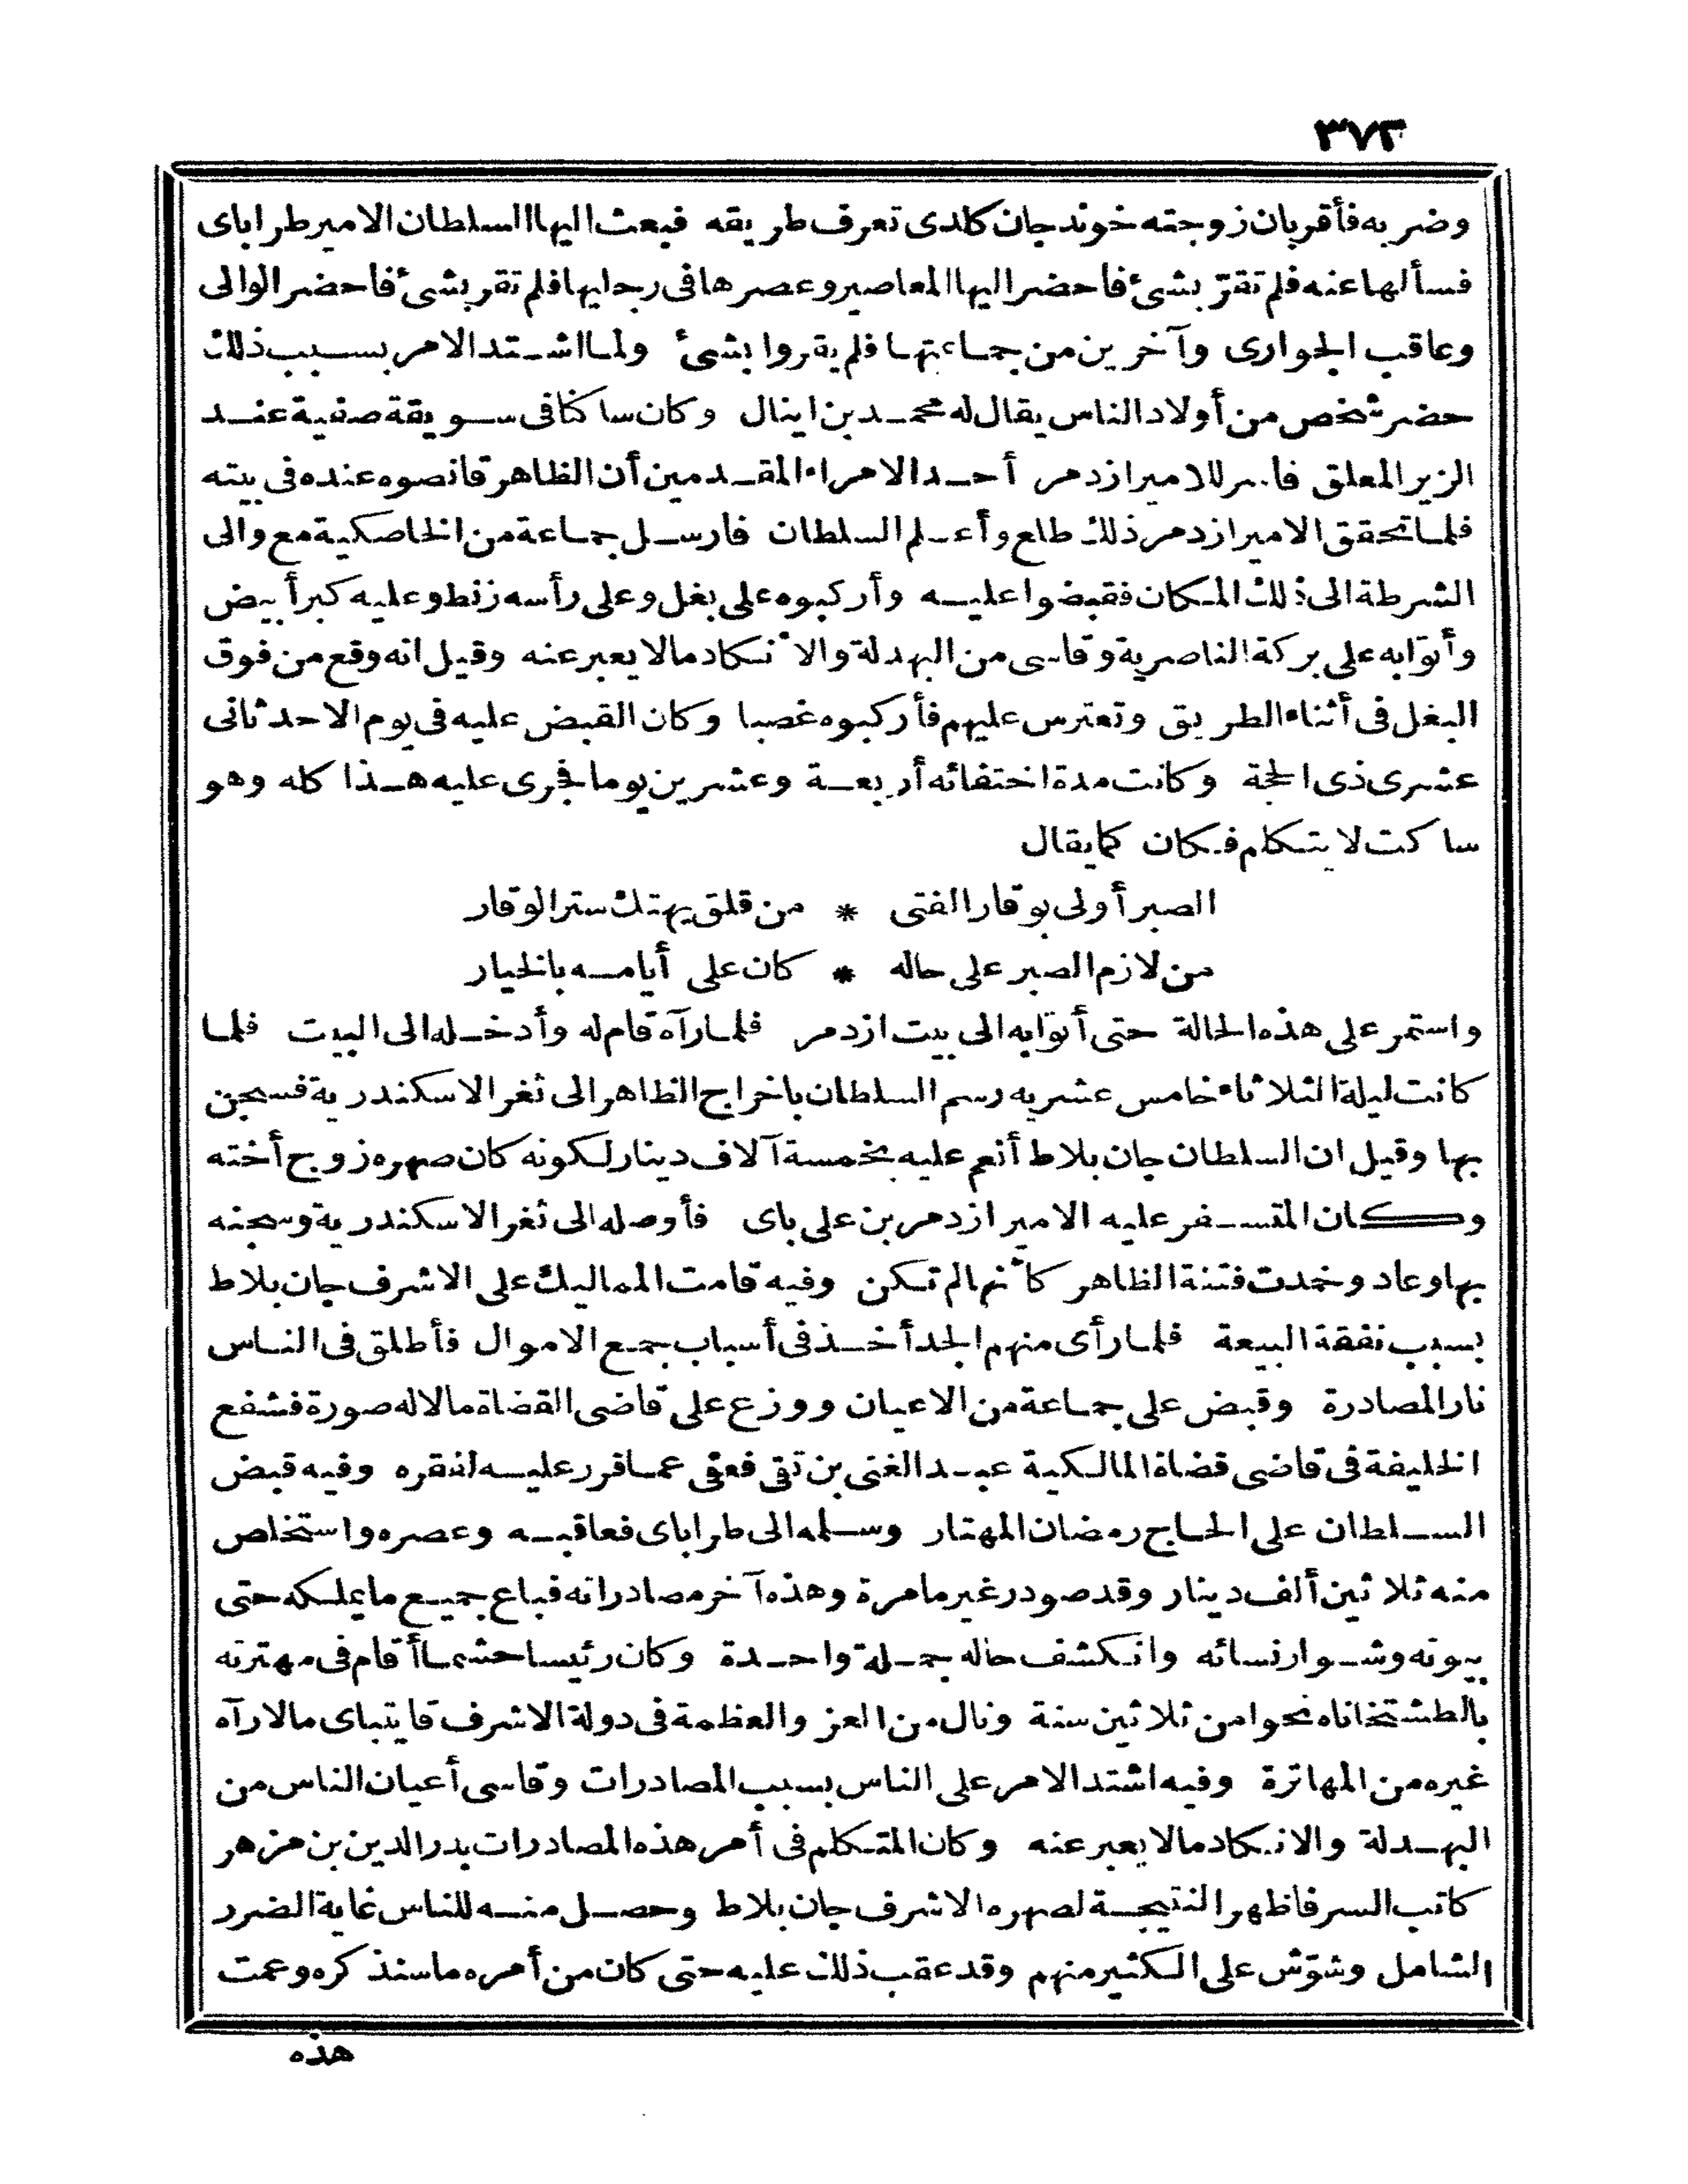 ٣٧٢
وضربه فأقر بان زوجته خوند جان كلدى تعرف طريقه فبعث اليها السلطان الامير طراباى
فسألها عنه فلم تقرّ بشئ فاحضر اليها المعاصير وعصرها فى رجليها فلم تقر بشئ فاحضر الوالى
وعاقب الجوارى وآخرين من جماعتها فلم يقروا بشئ ولما اشتد الامر بسبب ذلك
حضر شخص من أولاد الناس يقال له محمد بن اينال وكان ساكنا فى سويقة صفية عند
الزير المعلق فأسر للامير ازدمر أحد الامراء المقدمين أن الظاهر قانصوه عنده فى بيته
فلما تحقق الامير ازدمر ذلك طلع وأعلم السلطان فارسل جماعة من الخاصكية مع والى
الشرطة الى ذلك المكان فقبضوا عليه وأركبوه على بغل وعلى رأسه زنط وعليه كبر أبيض
وأتوا به على بركة الناصرية وقاسى من البهدلة والانكاد مالا يعبر عنه وقيل انه وقع من فوق
البغل فى أثناء الطريق وتعترس عليهم فأركبوه غصبا وكان القبض عليه فى يوم الاحد ثانى
عشرى ذى الحجة وكانت مدة اختفائه أربعة وعشرين يوما فجرى عليه هذا كله وهو
ساكت لا يتكلم فكان كما يقال
الصبر أولى بوقار الفتى * من قلق يهتك ستر الوقار
من لازم الصبر على حاله * كان على أيامه بالخيار
واستمر على هذه الحالة حتى أتوا به الى بيت ازدمر فلما رآه قام له وأدخله الى البيت فلما
كانت ليلة الثلاثاء خامس عشريه رسم السلطان باخراج الظاهر الى ثغر الاسكندرية فسجن
بها وقيل ان السلطان جان بلاط أنعم عليه بخمسة آلاف دينار لكونه كان صهره زوج أخته
وكان المتسفر عليه الامير ازدمر بن على باى فأوصله الى ثغر الاسكندرية وسجنه
بها وعاد وخمدت فتنة الظاهر كأنها لم تكن وفيه قامت المماليك على الاشرف جان بلاط
بسبب نفقة البيعة فلما رأى منهم الجد أخذ فى أسباب جمع الاموال فأطلق فى الناس
نار المصادرة وقبض على جماعة من الاعيان ووزع على قاضى القضاة مالا له صورة فشفع
الخليفة فى قاضى قضاة المالكية عبد الغنى بن تقى فعفى عما قرر عليه لفقره وفيه قبض
السلطان على الحاج رمضان المهتار وسلمه الى طراباى فعاقبه وعصره واستخلص
منه ثلاثين ألف دينار وقد صودر غير ما مرة وهذه آخر مصادراته فباع جميع ما يملكه حتى
بيوته وشوار نسائه وانكشف حاله جملة واحدة وكان رئيسا حشما أقام فى مهترته
بالطشتخاناه نحوا من ثلاثين سنة ونال من العز والعظمة فى دولة الاشرف قايتباى مالا رآه
غيره من المهاترة وفيه اشتد الامر على الناس بسبب المصادرات وقاسى أعيان الناس من
البهدلة والانكاد مالا يعبر عنه وكان المتكلم فى أمر هذه المصادرات بدر الدين بن مزهر
كاتب السر فاظهر النتيجة لصهره الاشرف جان بلاط وحصل منه للناس غاية الضرر
الشامل وشوّش على الكثير منهم وقد عقب ذلك عليه حتى كان من أمره ما سنذكره وعمت
هذه